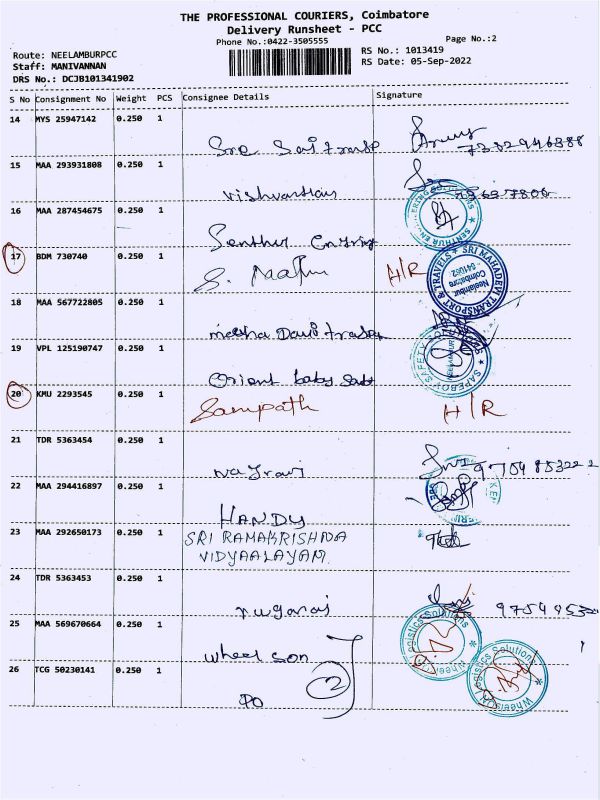 THE PROFESSIONAL COURIERS, Coimbatore
Delivery Runsheet - PCC
Phone No.:0422-3505555
Page No.:2
Route: NEELAMBURPCC
Staff: MANIVANNAN
DRS No.: DCJB101341902
RS No.: 1013419
RS Date: 05-Sep-2022
S No Consignment No Weight PCS Consignee Details Signature
14 MYS 25947142 0.250 1
15 MAA 293931808 0.250 1
16 MAA 287454675 0.250 1
Senthur
17 BDM 730740 0.250 1
H/R
SRI MAHADEVI TRANSPORT & TRAVELS
Neelambur
Coimbatore
641062
18 MAA 567722805 0.250 1
19 VPL 125190747 0.250 1
Orient baby
20 KMU 2293545 0.250 1
Sampath H/R
21 TDR 5363454 0.250 1
22 MAA 294416897 0.250 1
HANDY
23 MAA 292650173 0.250 1
SRI RAMAKRISHNA
VIDYAALAYAM
24 TDR 5363453 0.250 1
25 MAA 569670664 0.250 1
Wheel son
Logistics Solutions
26 TCG 50230141 0.250 1
DO